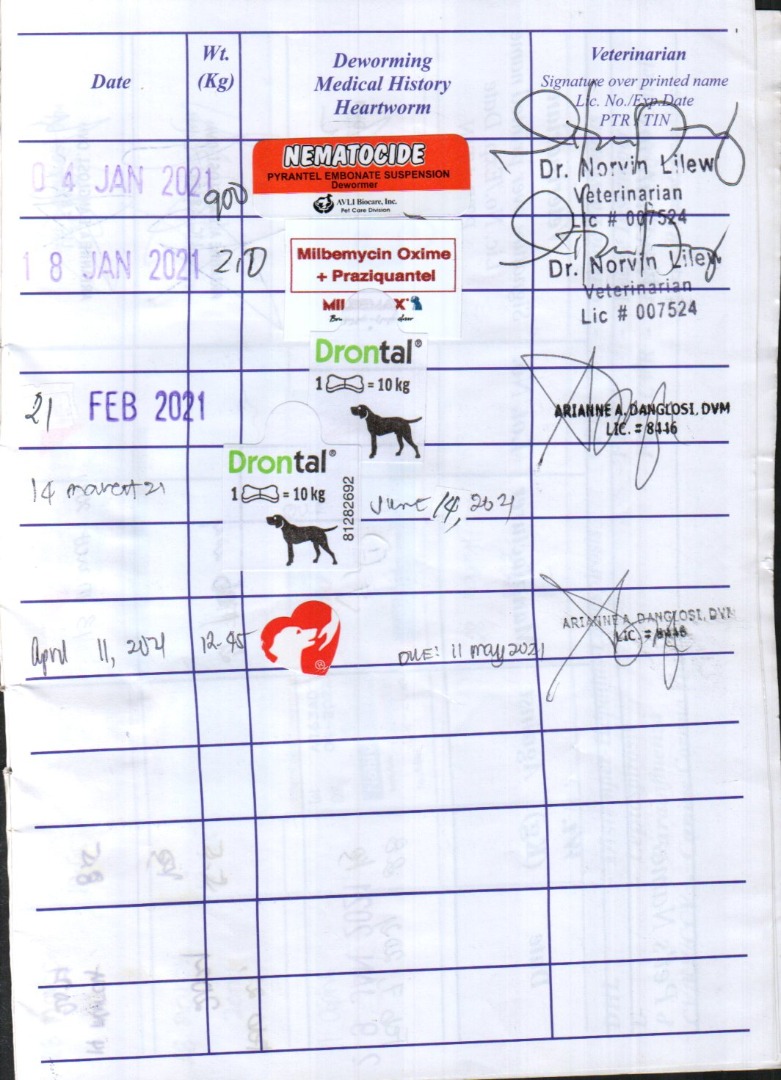 Date
Wt.
(Kg)
Deworming
Medical History
Heartworm
Veterinarian
Signature over printed name
Lic. No./Exp.Date
PTR TIN
0 4 JAN 2021
900
NEMATOCIDE
PYRANTEL EMBONATE SUSPENSION
Dewormer
AVLI Biocare, Inc.
Pet Care Division
Dr. Norvin Lilew
Veterinarian
Lic # 007524
1 8 JAN 2021
Milbemycin Oxime
+ Praziquantel
Mil X
Dr. Norvin Lilew
Veterinarian
Lic # 007524
21 FEB 2021
Drontal®
1 = 10 kg
ARIANNE A. DANGLOSI, DVM
LIC. # 8446
14 march 21
Drontal®
1 = 10 kg
81282692
June 14, 2021
April 11, 2021
12.45
DUE: 11 may 2021
ARIANNE A. DANGLOSI, DVM
LIC. # 8446